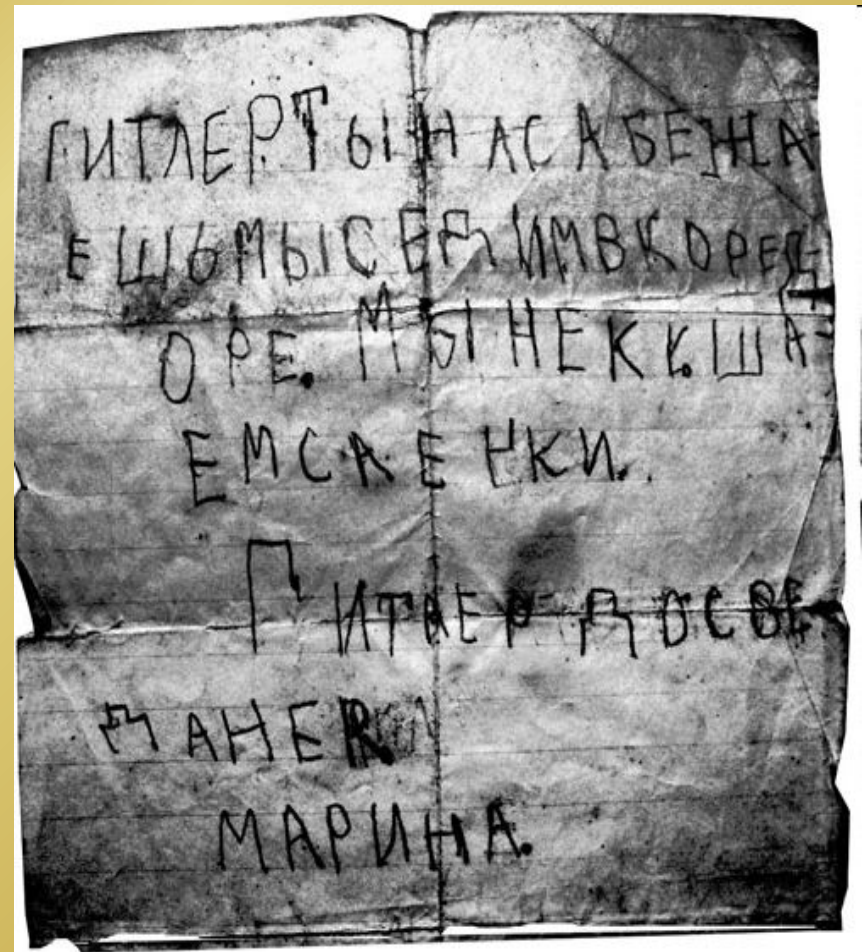 ГИТЛЕР ТЫ НАС АБЕЖА-
ЕШЬ МЫ СЕДИМ В КОРЕД-
ОРЕ. МЫ НЕ КУША-
ЕМ САЕЧКИ.
ГИТЛЕР ДОСВЕ
ДАНЕЯ
МАРИНА.